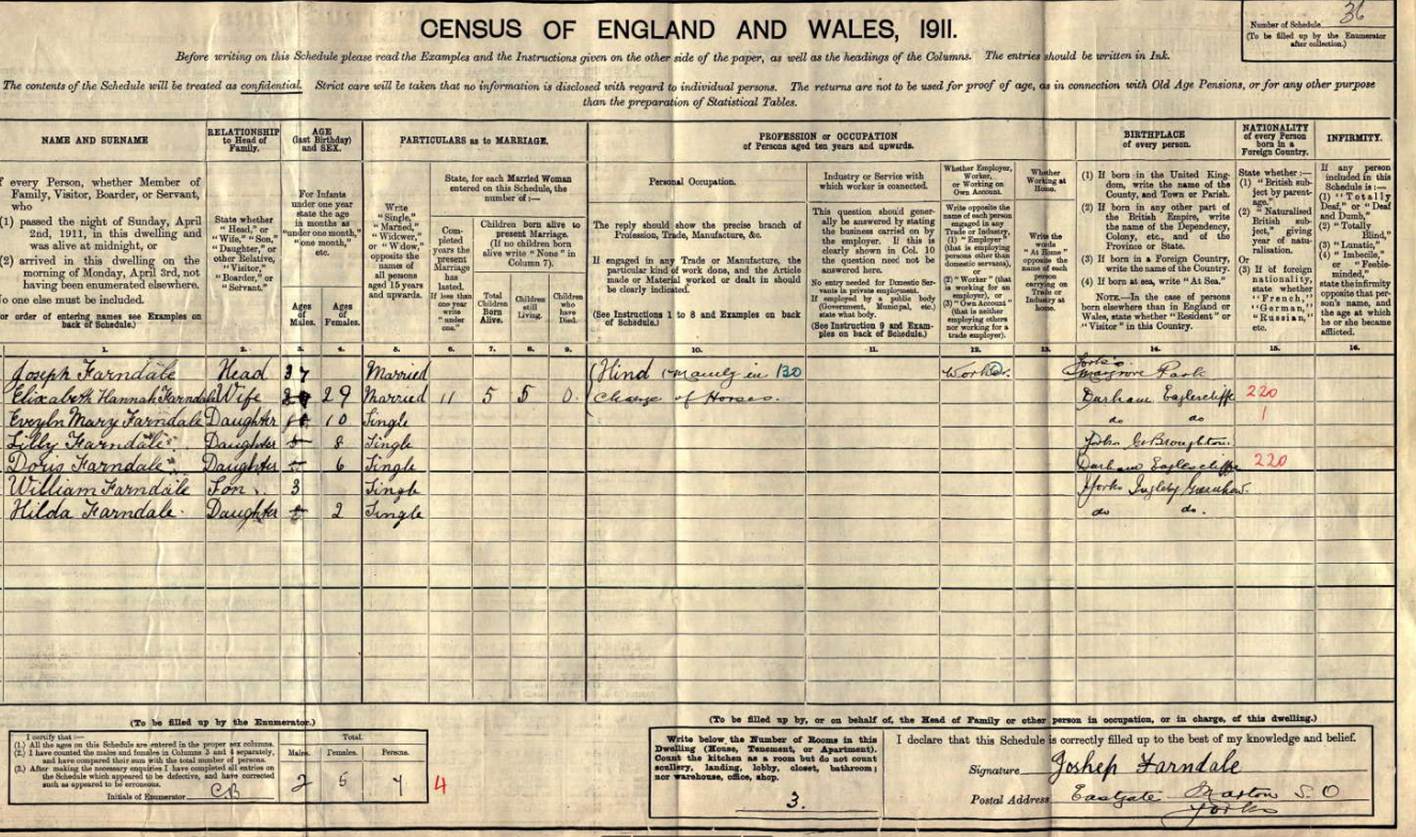 36
Number of Schedule
(To be filled up by the Enumerator
after collection.)
CENSUS OF ENGLAND AND WALES, 1911.
Before writing on this Schedule please read the Examples and the Instructions given on the other side of the paper, as well as the headings of the Columns. The entries should be written in Ink.
The contents of the Schedule will be treated as confidential. Strict care will be taken that no information is disclosed with regard to individual persons. The returns are not to be used for proof of age, as in connection with Old Age Pensions, or for any other purpose
than the preparation of Statistical Tables.
NAME AND SURNAME
RELATIONSHIP
to Head of
Family.
AGE
(last Birthday)
and SEX.
PARTICULARS as to MARRIAGE.
PROFESSION or OCCUPATION
of Persons aged ten years and upwards.
BIRTHPLACE
of every person.
NATIONALITY
of every Person
born in a
Foreign Country.
INFIRMITY.
f every Person, whether Member of
Family, Visitor, Boarder, or Servant,
who
(1) passed the night of Sunday, April
2nd, 1911, in this dwelling and
was alive at midnight, or
(2) arrived in this dwelling on the
morning of Monday, April 3rd, not
having been enumerated elsewhere.
o one else must be included.
or order of entering names see Examples on
back of Schedule.)
State whether
"Head," or
"Wife," "Son,"
"Daughter," or
other Relative,
"Visitor,"
"Boarder," or
"Servant."
For Infants
under one year
state the age
in months as
"under one month,"
"one month,"
etc.
Ages
of
Males.
Ages
of
Females.
Write
"Single,"
"Married,"
"Widower,"
or "Widow,"
opposite the
names of
all persons
aged 15 years
and upwards.
State, for each Married Woman
entered on this Schedule, the
number of :—
Completed
years the
present
Marriage
has
lasted.
If less than
one year
write
"under
one."
Children born alive to
present Marriage.
(If no children born
alive write "None" in
Column 7).
Total
Children
Born
Alive.
Children
still
Living.
Children
who
have
Died.
Personal Occupation.
The reply should show the precise branch of
Profession, Trade, Manufacture, &c.
If engaged in any Trade or Manufacture, the
particular kind of work done, and the Article
made or Material worked or dealt in should
be clearly indicated.
(See Instructions 1 to 8 and Examples on back
of Schedule.)
Industry or Service with
which worker is connected.
This question should gener-
ally be answered by stating
the business carried on by
the employer. If this is
clearly shown in Col. 10
the question need not be
answered here.
No entry needed for Domestic Ser-
vants in private employment.
If employed by a public body
(Government, Municipal, etc.)
state what body.
(See Instruction 9 and Exam-
ples on back of Schedule.)
Whether Employer,
Worker,
or Working on
Own Account.
Write opposite the
name of each person
engaged in any
Trade or Industry,
(1) "Employer"
(that is employing
persons other than
domestic servants),
or
(2) "Worker" (that
is working for an
employer), or
(3) "Own Account"
(that is neither
employing others
nor working for a
trade employer).
Whether
Working at
Home.
Write the
words
"At Home"
opposite the
name of each
person
carrying on
Trade or
Industry at
home.
(1) If born in the United King-
dom, write the name of the
County, and Town or Parish.
(2) If born in any other part of
the British Empire, write
the name of the Dependency,
Colony, etc., and of the
Province or State.
(3) If born in a Foreign Country,
write the name of the Country.
(4) If born at sea, write "At Sea."
NOTE.—In the case of persons
born elsewhere than in England or
Wales, state whether "Resident" or
"Visitor" in this Country.
State whether :—
(1) "British sub-
ject by parent-
age."
(2) "Naturalised
British sub-
ject," giving
year of natu-
ralisation.
Or
(3) If of foreign
nationality,
state whether
"French,"
"German,"
"Russian,"
etc.
If any person
included in this
Schedule is :—
(1) "Totally
Deaf," or "Deaf
and Dumb,"
(2) "Totally
Blind,"
(3) "Lunatic,"
(4) "Imbecile,"
or "Feeble-
minded,"
state the infirmity
opposite that per-
son's name, and
the age at which
he or she became
afflicted.
1. 2. 3. 4. 5. 6. 7. 8. 9. 10. 11. 12. 13. 14. 15. 16.
Joseph Farndale Head 37 Married (Hind mainly in 130 Worker. Yorks. Margrove Park
Elizabeth Hannah Farndale Wife 29 Married 11 5 5 0. Charge of Horses. Durham Eaglescliffe 220
Evelyn Mary Farndale Daughter 10 Single do do 1
Lilly Farndale Daughter 8 Single Yorks Gt Broughton.
Doris Farndale Daughter 6 Single Durham Eaglescliffe 220
William Farndale Son 3 Single Yorks Ingleby Greenhow.
Hilda Farndale. Daughter 2 Single do do.
(To be filled up by the Enumerator.)
I certify that :—
(1.) All the ages on this Schedule are entered in the proper sex columns.
(2.) I have counted the males and females in Columns 3 and 4 separately,
and have compared their sum with the total number of persons.
(3.) After making the necessary enquiries I have completed all entries on
the Schedule which appeared to be defective, and have corrected
such as appeared to be erroneous.
Initials of Enumerator CB
Total.
Males. Females. Persons.
2 5 7 4
(To be filled up by, or on behalf of, the Head of Family or other person in occupation, or in charge, of this dwelling.)
Write below the Number of Rooms in this
Dwelling (House, Tenement, or Apartment).
Count the kitchen as a room but do not count
scullery, landing, lobby, closet, bathroom;
nor warehouse, office, shop.
3.
I declare that this Schedule is correctly filled up to the best of my knowledge and belief.
Signature Joshep Farndale
Postal Address Eastgate Marton S.O
Yorks